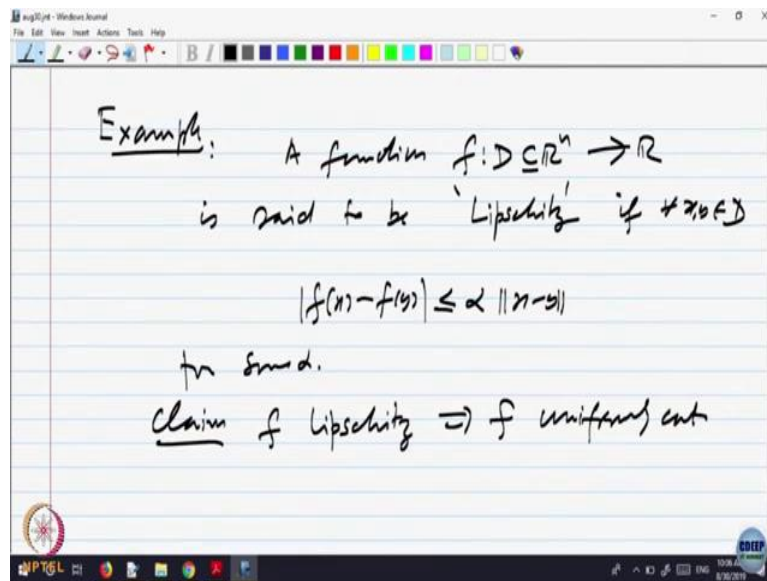 aug30.jnt - Windows Journal
File Edit View Insert Actions Tools Help
B I
Example: A function f: D ⊆ ℝⁿ → ℝ
is said to be 'Lipschitz' if ∀ x,y ∈ D
|f(x) - f(y)| ≤ α ||x-y||
for some α.
Claim f Lipschitz ⇒ f uniformly cont
NPTEL
CDEEP
ENG
10:06 AM
8/30/2019